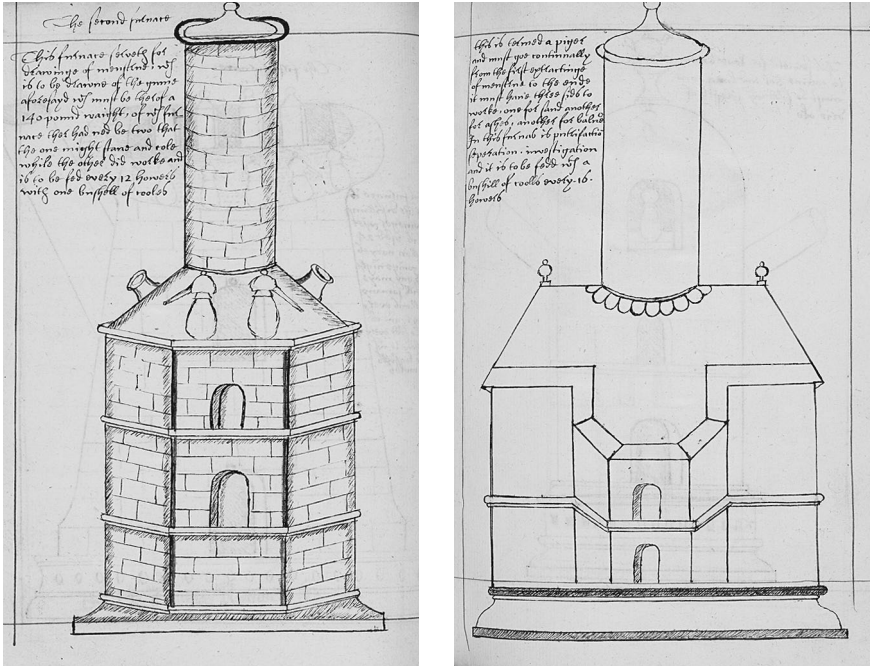 The second furnace
This furnace serveth for
drawinge of menstrue wch
is to be drawne of the gume
aforesayd wch must be therof a
140 pound waight, of wch fur
nace ther had ned be two that
the one might stand and cole
while the other did worke and
is to be fed every 12 howers
with one bushell of cooles
this is termed a piger
and must goe continually
from the first extractinge
of menstrue to the ende
it must have three sids to
worke, one for sand another
for ashes, another for balne
In this furnas is putrifactio
seperation. investigation
and it is to be fedd wth a
bushill of coolls every .16.
howers